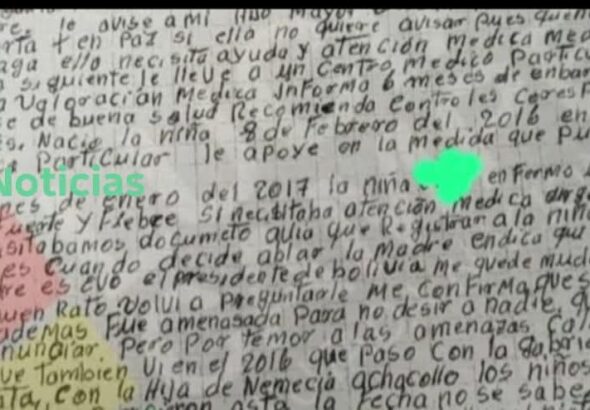 le avise a mi Hijo mayor
+ en Paz si ella no quiere avisar Pues
ella necisita ayuda y atención medica
siguiente le lleve a un centro medico Particu
Valoración Medica informa 6 meses de enbar
de buena salud Recomienda controles
Nacio la niña 8 de Febrero del 2016 en
Particular le apoye en la medida que pu
Noticias
de enero del 2017 la niña en Fermo
y Fiebre Si necisitaba atención medica
documeto avia que Registrar a la niña
cuando decide ablar la Madre endica que
es evo el presidente de bolivia me quede much
Rato volvi a preguntarle me confirma
ademas Fue amenasada Para no desir a nadie
Pero Por temor a las amenazas
Tambien Vi en el 2016 que Paso con la
con la Hija de Nemecia achacollo los niños
asta la Fecha no se sabe